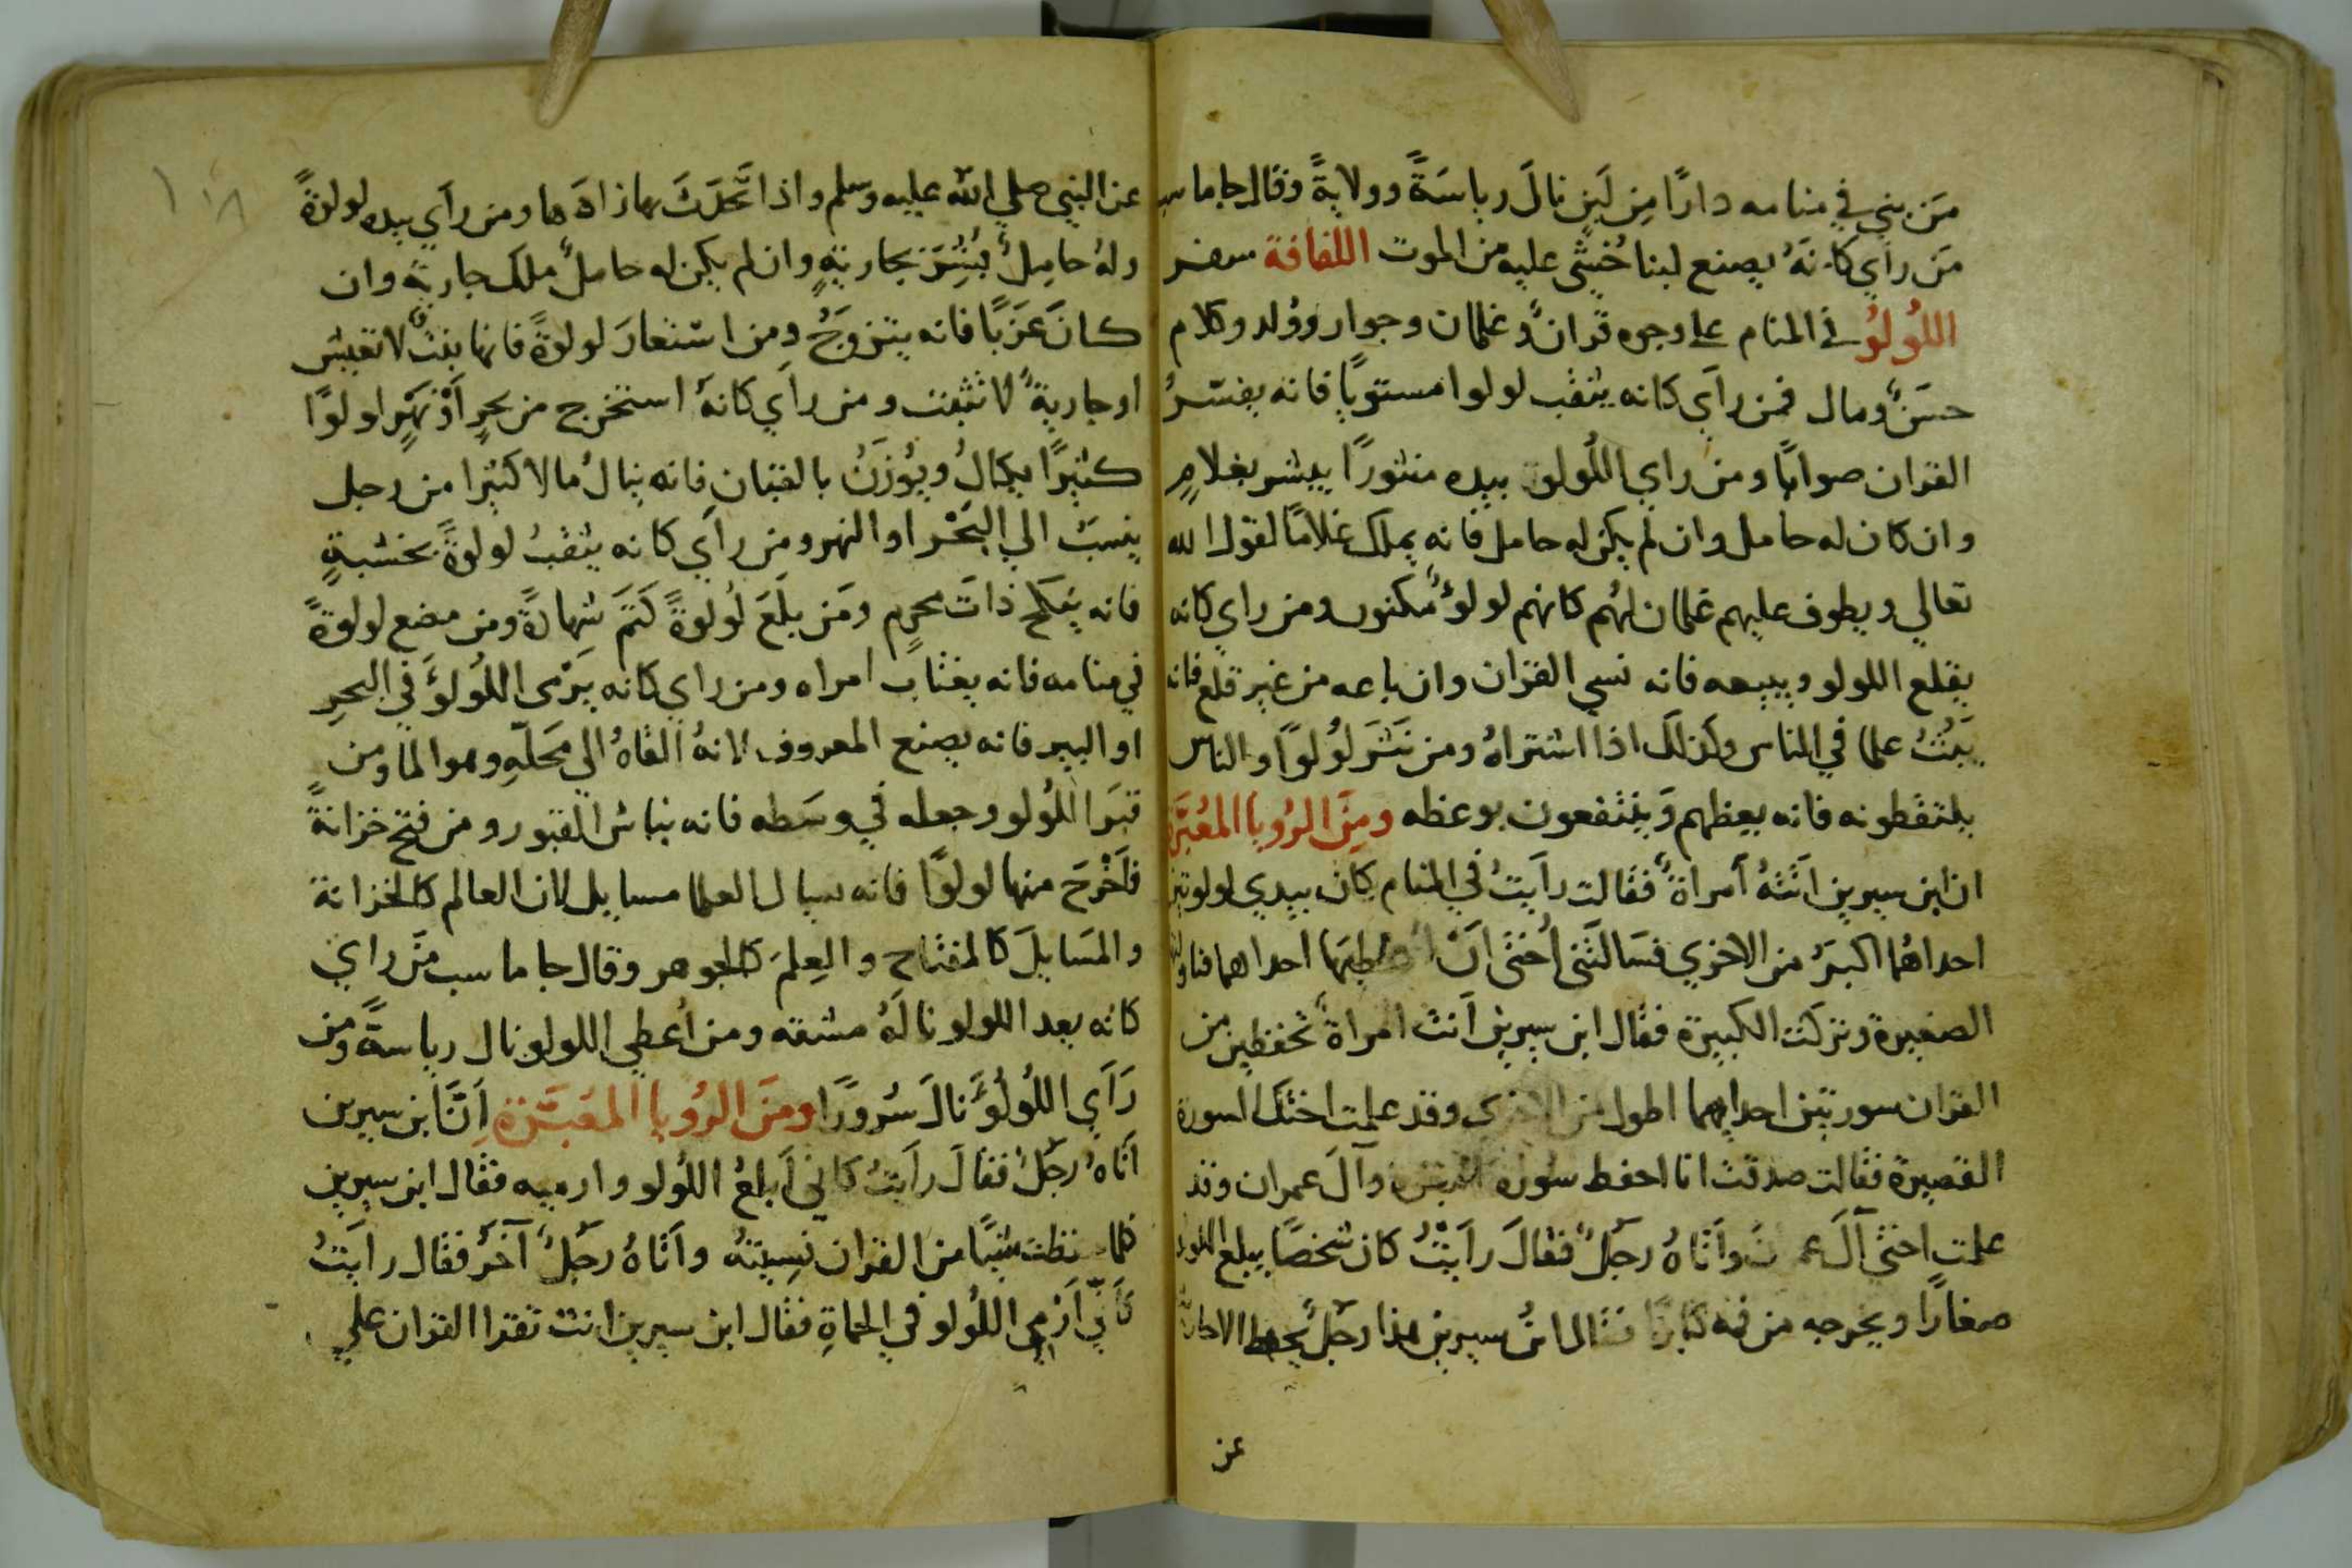 مَن بني في منامه دارًا مِن لَبِنٍ نالَ رياسَةً وولايةً وقال جاماسب
مَن رأي كانهُ يصنع لبنا خُشي عليه من الموت اللفافة سفر
اللُولُو في المنام علي وجوه قران وغلمان وجوار وولد وكلام
حسَن ومال فمن رأي كانه يثقب لولوا مستويا فانه يفسّرُ
القران صوابًا ومن راي اللُولو بيده منثورًا يبشر بغلامٍ
وان كان له حامل وان لم يكن له حامل فانه يملك غلامًا لقول الله
تعالي ويطوف عليهم غلمان لهُم كانهم لولوٌ مكنون ومن راي كانه
يقلع اللولو ويبيعه فانه نسي القران وان باعه من غير قلع فانه
يَبُثُ علما في الناس وكذلك اذا اشتراهُ ومن نَثَر لُولُوًا والناس
يلتقطونه فانه يعظهم وَينتفعون بوعظه ومِنَ الرُويا المُعَبَّرة
ان ابن سيرين اتَتهُ امراةٌ فقالت رايتُ في المنام كان بيدي لولوتين
احداهُما اكبرَ من الاخري فسَالَتني اُختي انْ اعطيها احداهما فناولتها
الصغيرة وتركت الكبيرة فقال ابن سيرين انت امراةٌ تحفظين من
القران سورتين احداهما اطول من الاخري وقد علمت اختك السورة
القصيرة فقالت صدقت انا احفظ سورة البقرة وآل عمران وقد
علمت اختي آلَ عمران واتاهُ رجلٌ فقالَ رايتُ كان شخصًا يبلع اللولو
صغارًا ويخرجه من فيه كبارًا فقال ابنُ سيرين هذا رجلٌ يحفظ الاحاديث
عن
١٠٨
عن النبي صلي الله عليه وسلم واذا تحَدَّثَ بها زادَها ومن رأي بيده لولوةً
وله حامِلٌ بُشِّرَ بجاريةٍ وان لم يكن له حاملٌ ملك جارية وان
كانَ عَزَبًا فانه يتزوَجُ ومن استعارَ لولوةً فانها بنتٌ لا تعيش
او جاريةٌ لا تثبت ومن راي كانهُ استخرج من بحرٍ اوْ نهَرٍ لولوًا
كثيرًا يكالُ ويُوزَنُ بالقبان فانه ينالُ مالا كثيرا من رجل
ينسبُ الي البَحْر او النهر ومن رأي كانه يثقبُ لولوةً بخشبةٍ
فانه ينكح ذاتَ محرم ومَن بلَعَ لُولُوةً كَتَمَ شهادةً ومن مضغ لولوةً
في منامه فانه يغتاب امراه ومن راي كانه يَرْمى اللُولُوَ في البحرِ
او البير فانه يصنع المعروف لانهُ القاهُ الي مَحَلّهِ وهو الما ومن
قبَر اللُولو وجعله في وسَطه فانه نباش القبور ومن فتح خزانةً
فاَخْرَجَ منها لولوًا فانه يسال العلما مسايل لان العالم كالخزانة
والمسَايلَ كالمفتاح والعِلمَ كالجوهر وقال جاماسب مَن راي
كانه يعد اللولو نالَهُ مشقه ومن اُعطي اللولو نال رياسةً ومن
رَاَي اللُولُوَ نالَ سُرورًا ومنَ الرُويا المعَبَّرة اَنَّ ابن سيرين
اتاهُ رجُلٌ فقالَ رايتُ كاني اَبلعُ اللُولو وارميه فقال ابن سيرين
كلما حفظت شيًا من القران نسِيتهُ واتاهُ رجلٌ آخرُ فقال رايتُ
كاني اَرْمي اللُولو في الحَماةِ فقال ابن سيرين انت تقرا القران علي